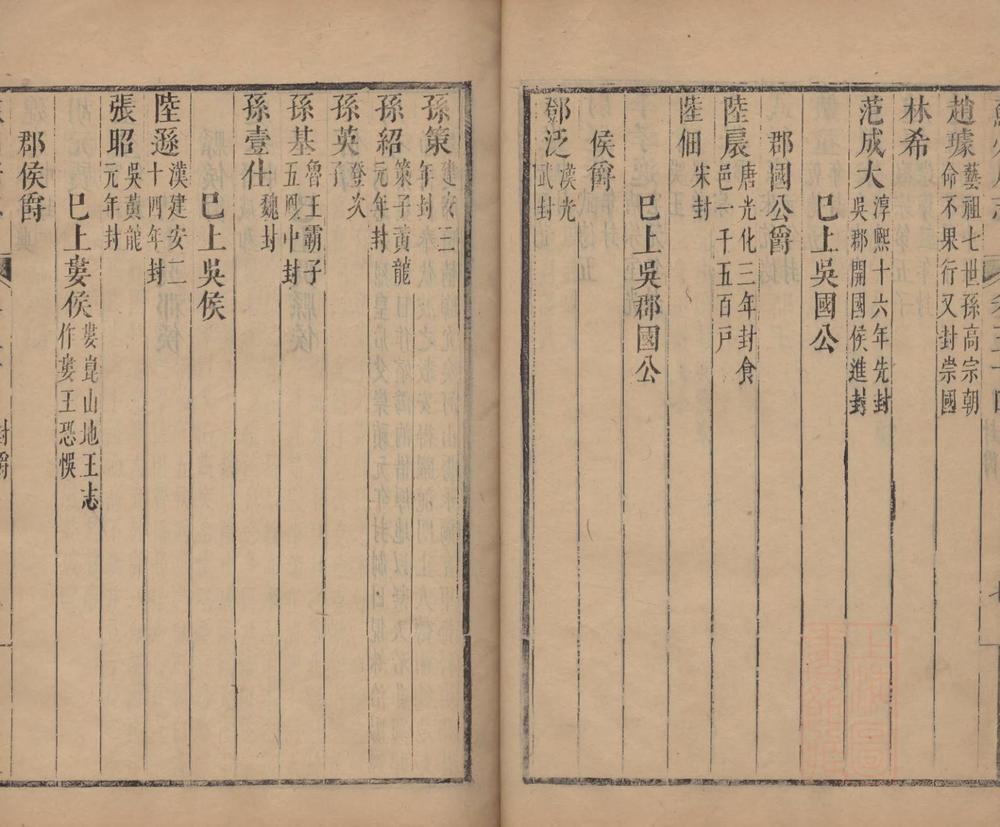 趙㻛藝祖七世孫高宗朝命不果行又封崇國
林希
范成大淳熙十六年先封吳郡開國侯進封
巳上吳國公
郡國公爵
陸扆唐光化三年封食邑一千五百戶
陸佃宋封
巳上吳郡國公
侯爵
鄧泛漢光武封
孫策建安三年封
孫紹策子黃龍元年封
孫英登次子
孫基魯王霸子五鳳中封
孫壹仕魏封
巳上吳侯
陸遜漢建安二十四年封
張昭吳黃龍元年封
巳上婁侯婁崑山地王志作婁王恐悞
郡侯爵
封爵